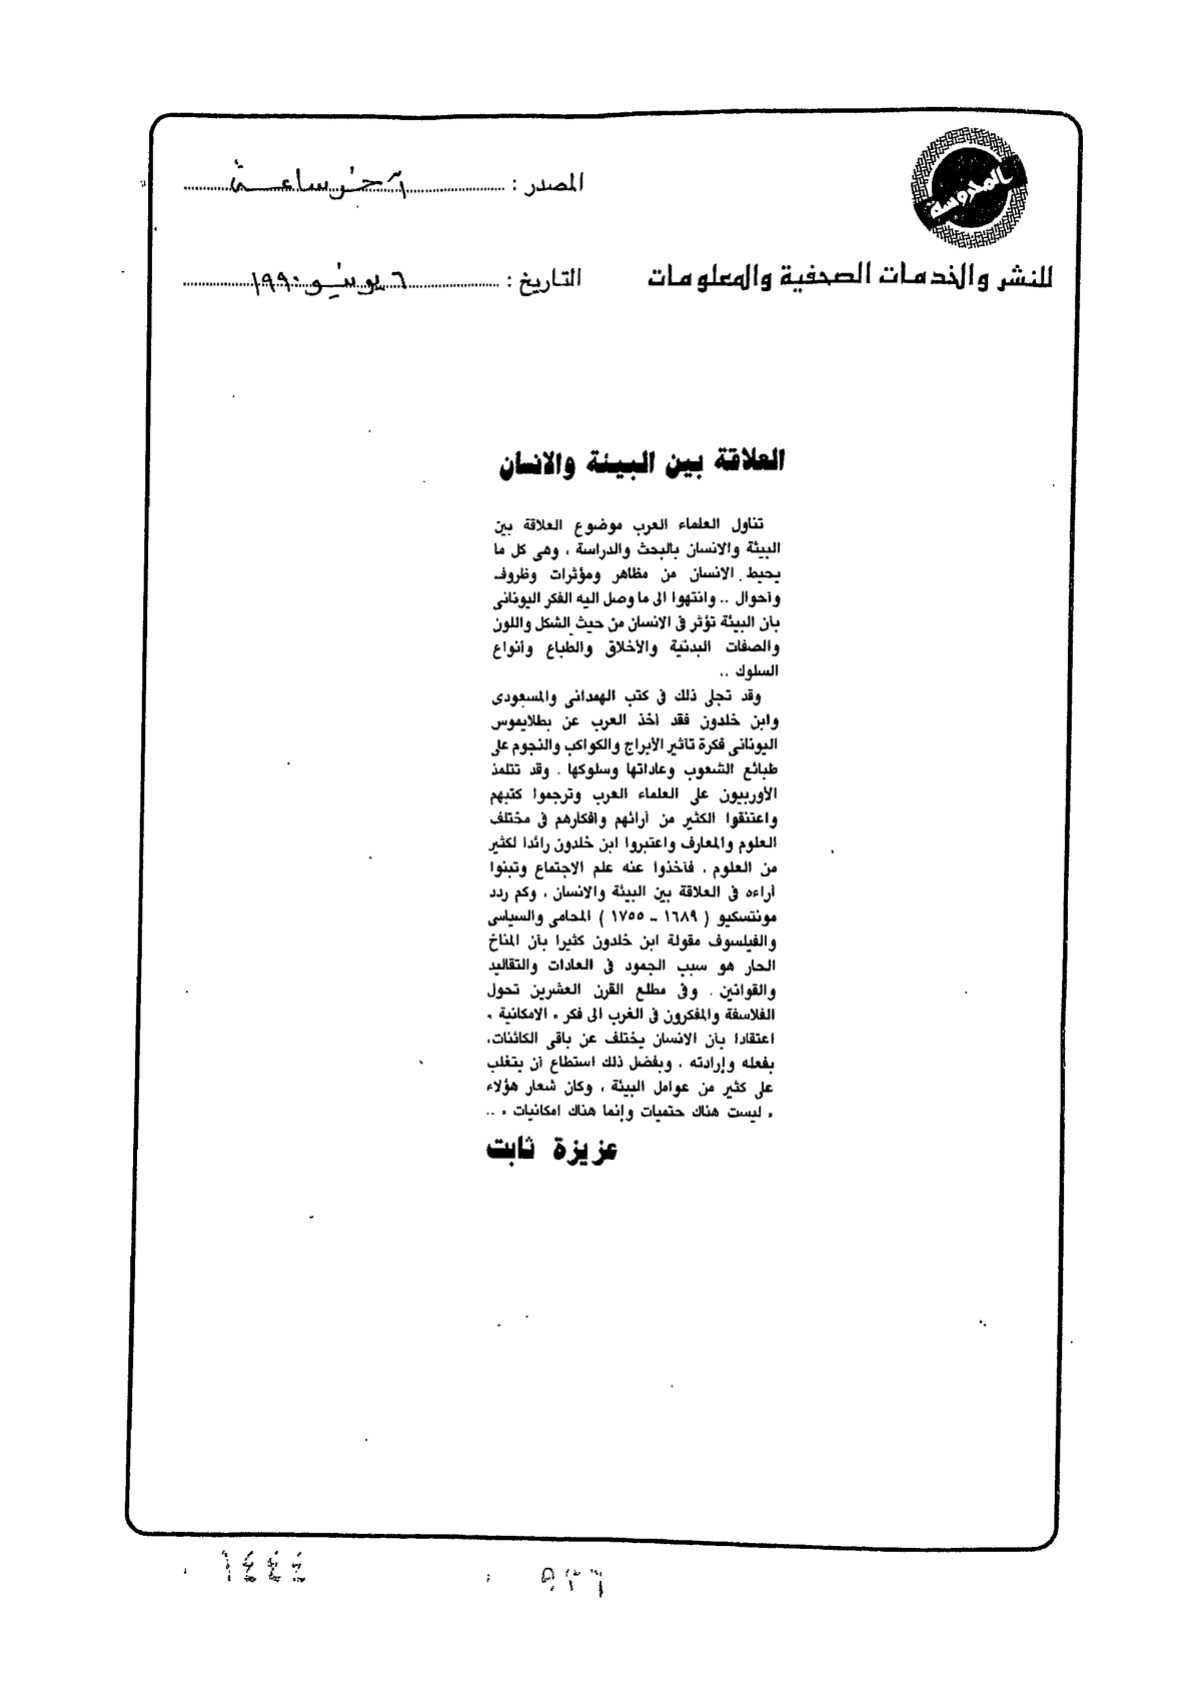 المحروسة
للنشر والخدمات الصحفية والمعلومات
المصدر : آخر ساعة
التاريخ : ٦ يونيو ١٩٩٠
العلاقة بين البيئة والانسان
تناول العلماء العرب موضوع العلاقة بين
البيئة والانسان بالبحث والدراسة ، وهى كل ما
يحيط الانسان من مظاهر ومؤثرات وظروف
وأحوال .. وانتهوا الى ما وصل اليه الفكر اليونانى
بأن البيئة تؤثر فى الانسان من حيث الشكل واللون
والصفات البدنية والأخلاق والطباع وأنواع
السلوك ..
وقد تجلى ذلك فى كتب الهمدانى والمسعودى
وابن خلدون فقد أخذ العرب عن بطلايموس
اليونانى فكرة تأثير الأبراج والكواكب والنجوم على
طبائع الشعوب وعاداتها وسلوكها . وقد تتلمذ
الأوربيون على العلماء العرب وترجموا كتبهم
واعتنقوا الكثير من أرائهم وافكارهم فى مختلف
العلوم والمعارف واعتبروا ابن خلدون رائدا لكثير
من العلوم ، فأخذوا عنه علم الاجتماع وتبنوا
أراءه فى العلاقة بين البيئة والانسان ، وكم ردد
مونتسكيو ( ١٦٨٩ - ١٧٥٥ ) المحامى والسياسى
والفيلسوف مقولة ابن خلدون كثيرا بأن المناخ
الحار هو سبب الجمود فى العادات والتقاليد
والقوانين . وفى مطلع القرن العشرين تحول
الفلاسفة والمفكرون فى الغرب الى فكر « الامكانية »
اعتقادا بأن الانسان يختلف عن باقى الكائنات،
بفعله وإرادته ، وبفضل ذلك استطاع أن يتغلب
على كثير من عوامل البيئة ، وكان شعار هؤلاء
« ليست هناك حتميات وإنما هناك امكانيات » ..
عزيزة ثابت
١٤٤٤